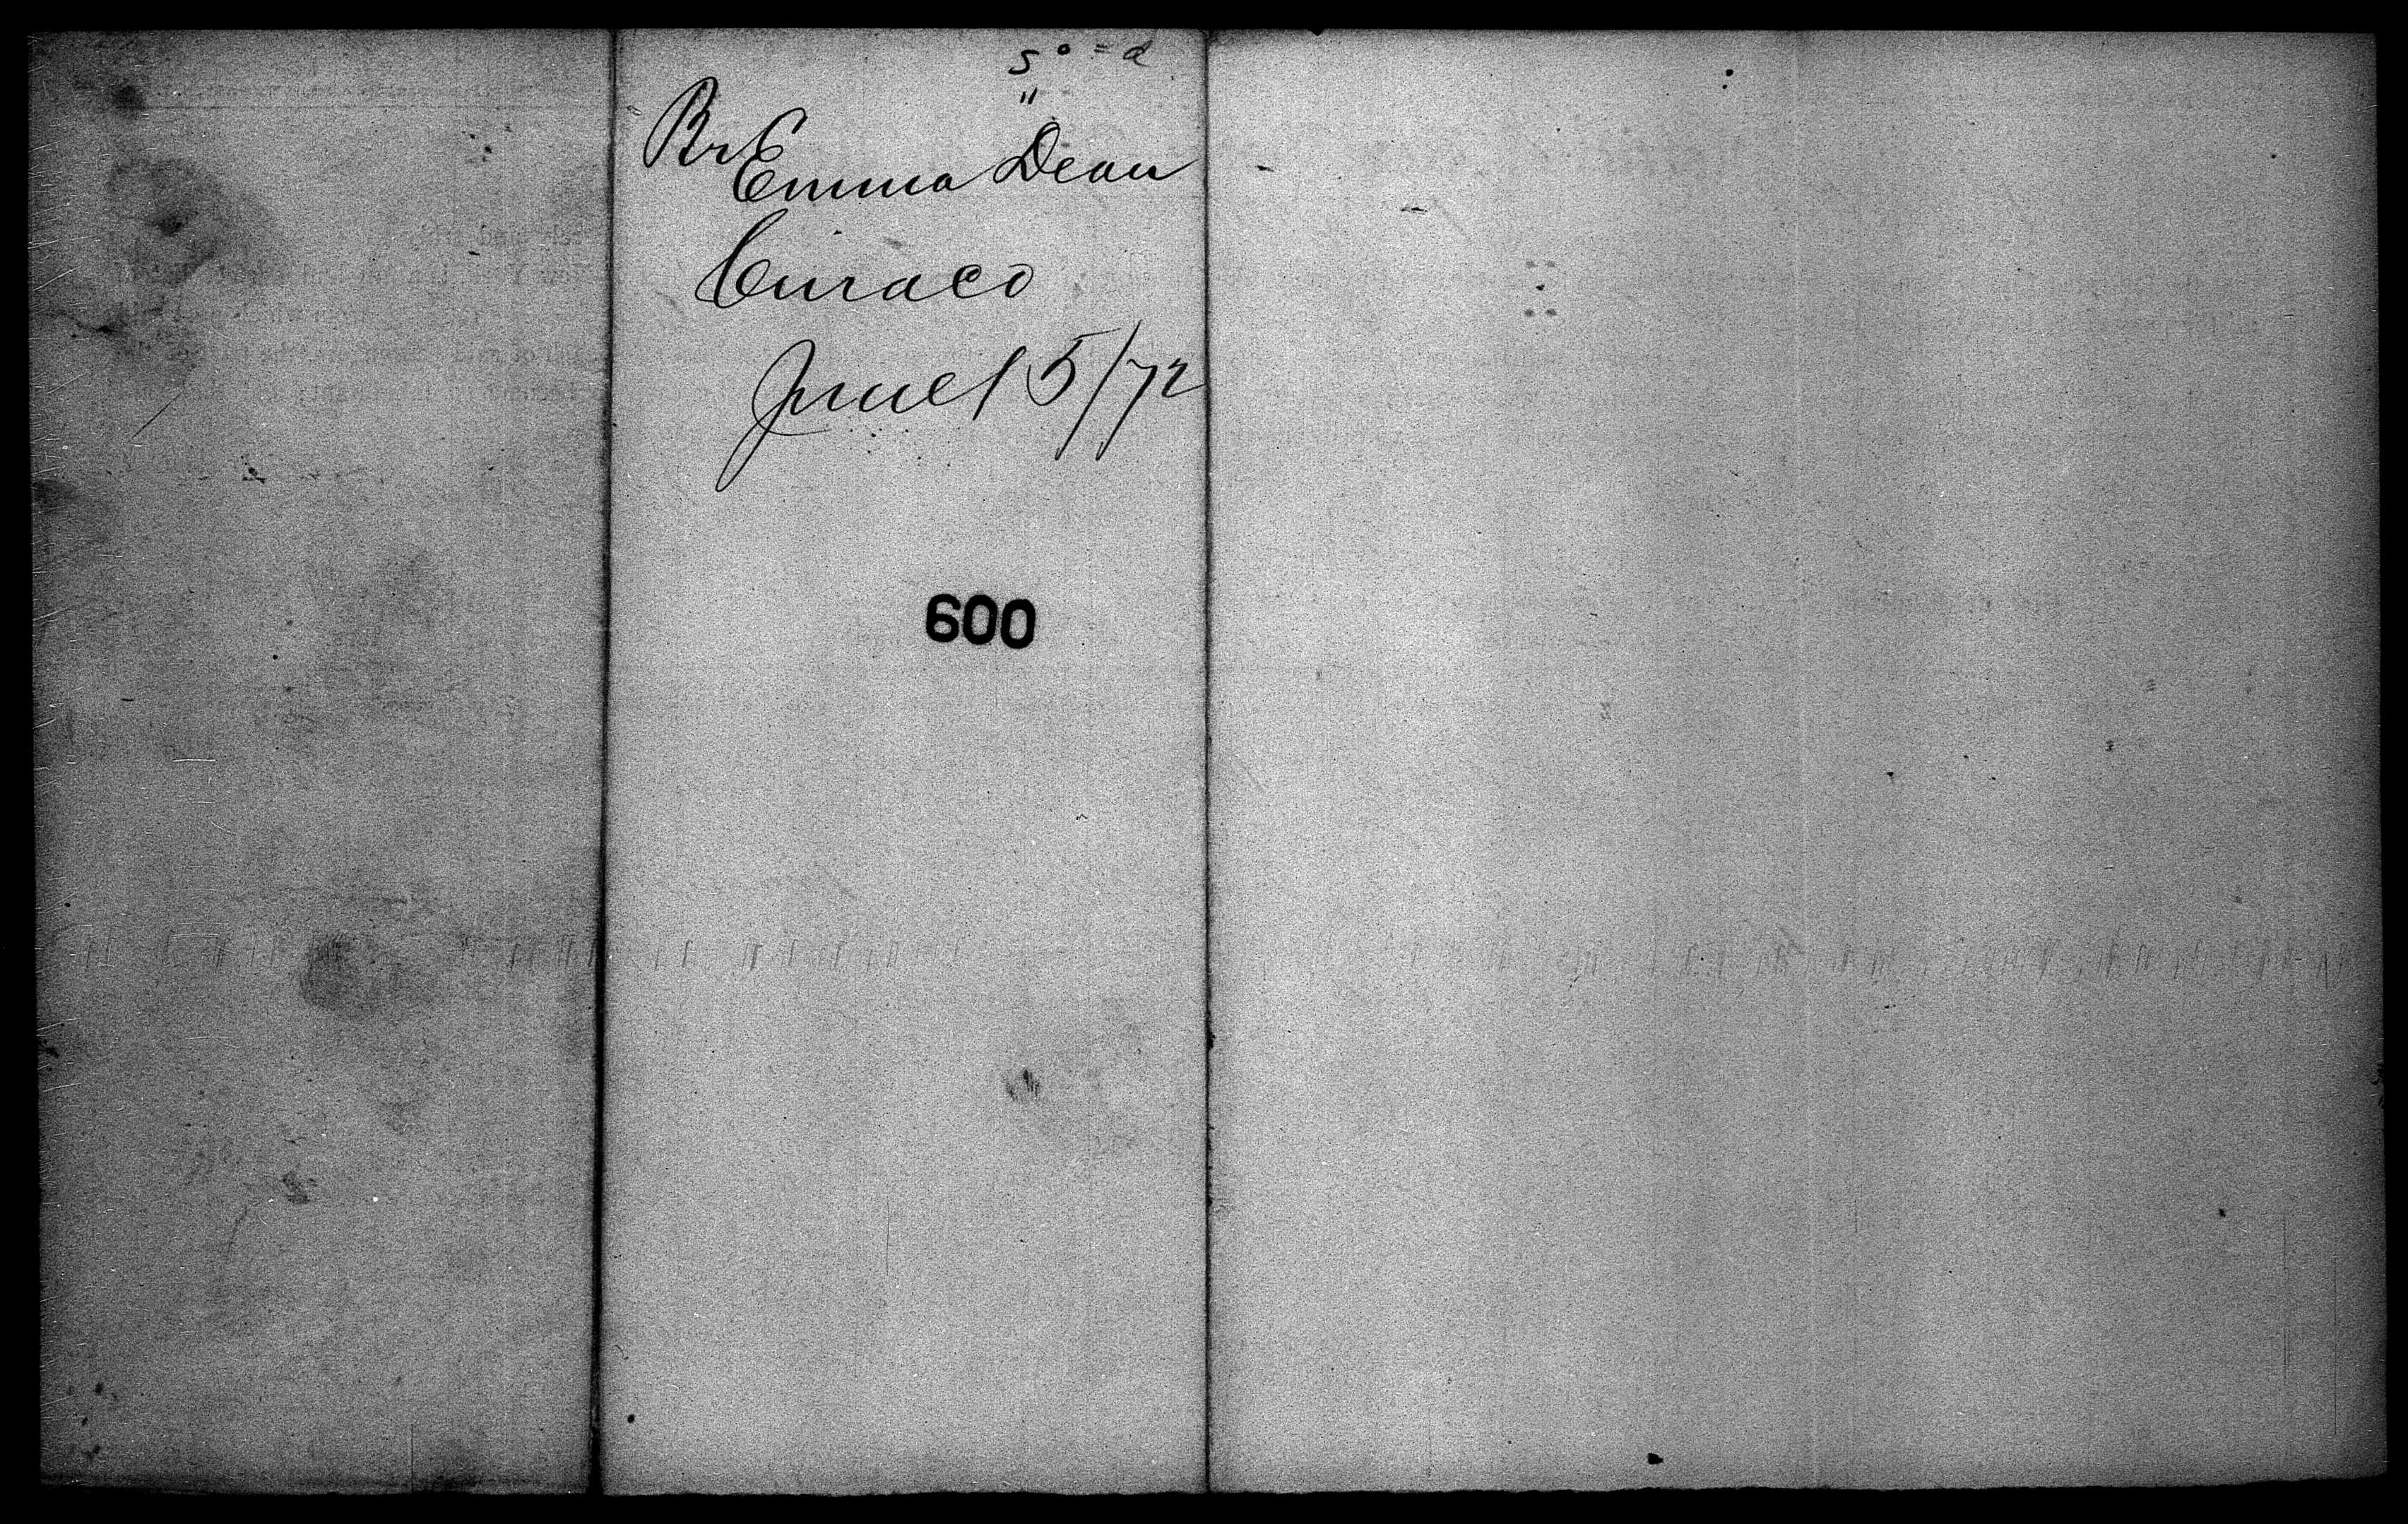 Br E
Emma Dean
Curaco
June 15/72
600